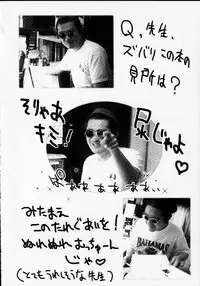 Q、先生、
ズバリこの本の
見所は?
そりゃあ
キミ!
尿じゃよ♡
みたまえ
このたれぐあいを!
ぬれぬれ
じゃ♡
(とてもうれしそうな先生)
BAHAMAS